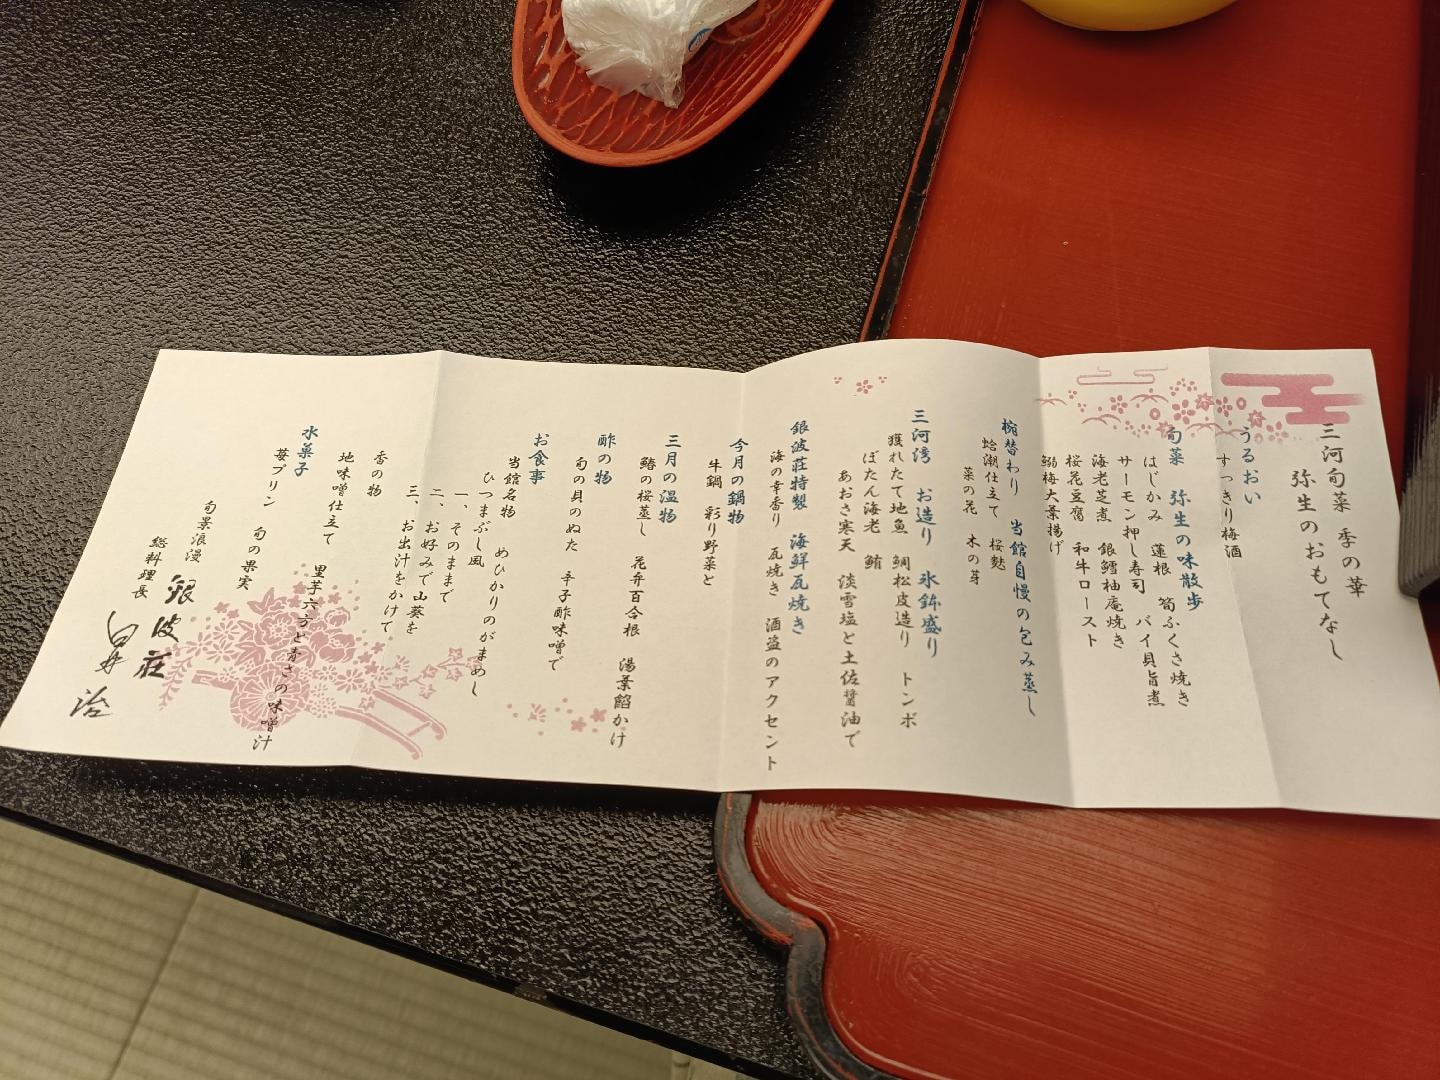 三河旬菜 季の華
弥生のおもてなし
うるおい
すっきり梅酒
旬菜 弥生の味散歩
はじかみ 蓮根 筍ふくさ焼き
サーモン押し寿司 バイ貝旨煮
海老芝煮 銀鱈柚庵焼き
桜花豆腐 和牛ロースト
鰯梅大葉揚げ
椀替わり 当館自慢の包み蒸し
蛤潮仕立て 桜麩
菜の花 木の芽
三河湾 お造り 氷鉢盛り
獲れたて地魚 鯛松皮造り トンボ
ぼたん海老 鮪
あおさ寒天 淡雪塩と土佐醤油で
銀波荘特製 海鮮瓦焼き
海の幸香り 瓦焼き 酒盗のアクセント
今月の鍋物
牛鍋 彩り野菜と
三月の温物
鰆の桜蒸し 花弁百合根 湯葉餡かけ
酢の物
旬の貝のぬた 辛子酢味噌で
お食事
当館名物 めひかりのがまめし
ひつまぶし風
一、そのままで
二、お好みで山葵を
三、お出汁をかけて
香の物
地味噌仕立て 里芋六方と青さの味噌汁
水菓子
苺プリン 旬の果実
旬景浪漫 銀波荘
総料理長 臼井治